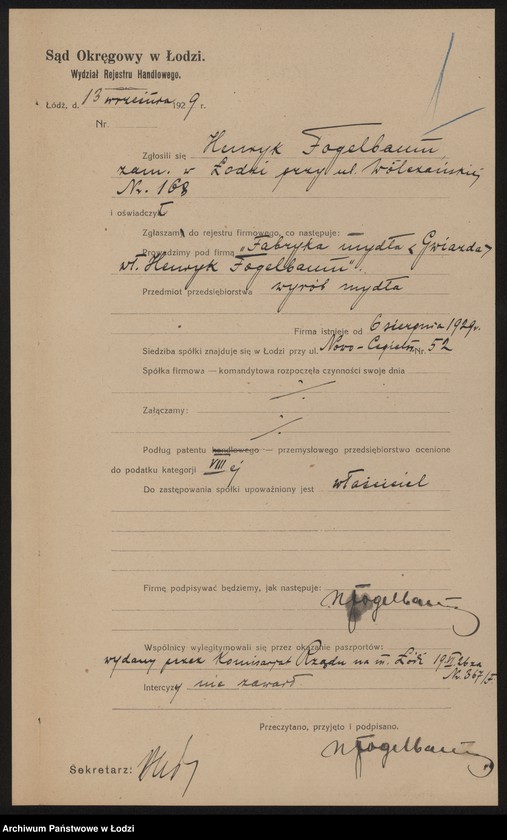 Sąd Okręgowy w Łodzi.
Wydział Rejestru Handlowego.
Łódź, d. 13 września 1929 r.
Nr.
Zgłosili się Henryk Fogelbaum,
zam. w Łodzi przy ul. Wólczańskiej
Nr. 168
i oświadczył
Zgłaszam do rejestru firmowego, co następuje:
Prowadzimy pod firmą „Fabryka mydła „Gwiazda”
wł. Henryk Fogelbaum".
Przedmiot przedsiębiorstwa wyrób mydła
Firma istnieje od 6 sierpnia 1929 r.
Siedziba spółki znajduje się w Łodzi przy ul. Nowo-Cegieln. Nr. 52
Spółka firmowa — komandytowa rozpoczęła czynności swoje dnia
./.
Załączamy:
./.
Podług patentu handlowego — przemysłowego przedsiębiorstwo ocenione
do podatku kategorji VIII ej
Do zastępowania spółki upoważniony jest właściciel
Firmę podpisywać będziemy, jak następuje:
Fogelbaum
Wspólnicy wylegitymowali się przez okazanie paszportów:
wydany przez Komisarjat Rządu na m. Łódź
Intercyzy nie zawarł.
Przeczytano, przyjęto i podpisano.
Fogelbaum
Sekretarz:
Archiwum Państwowe w Łodzi